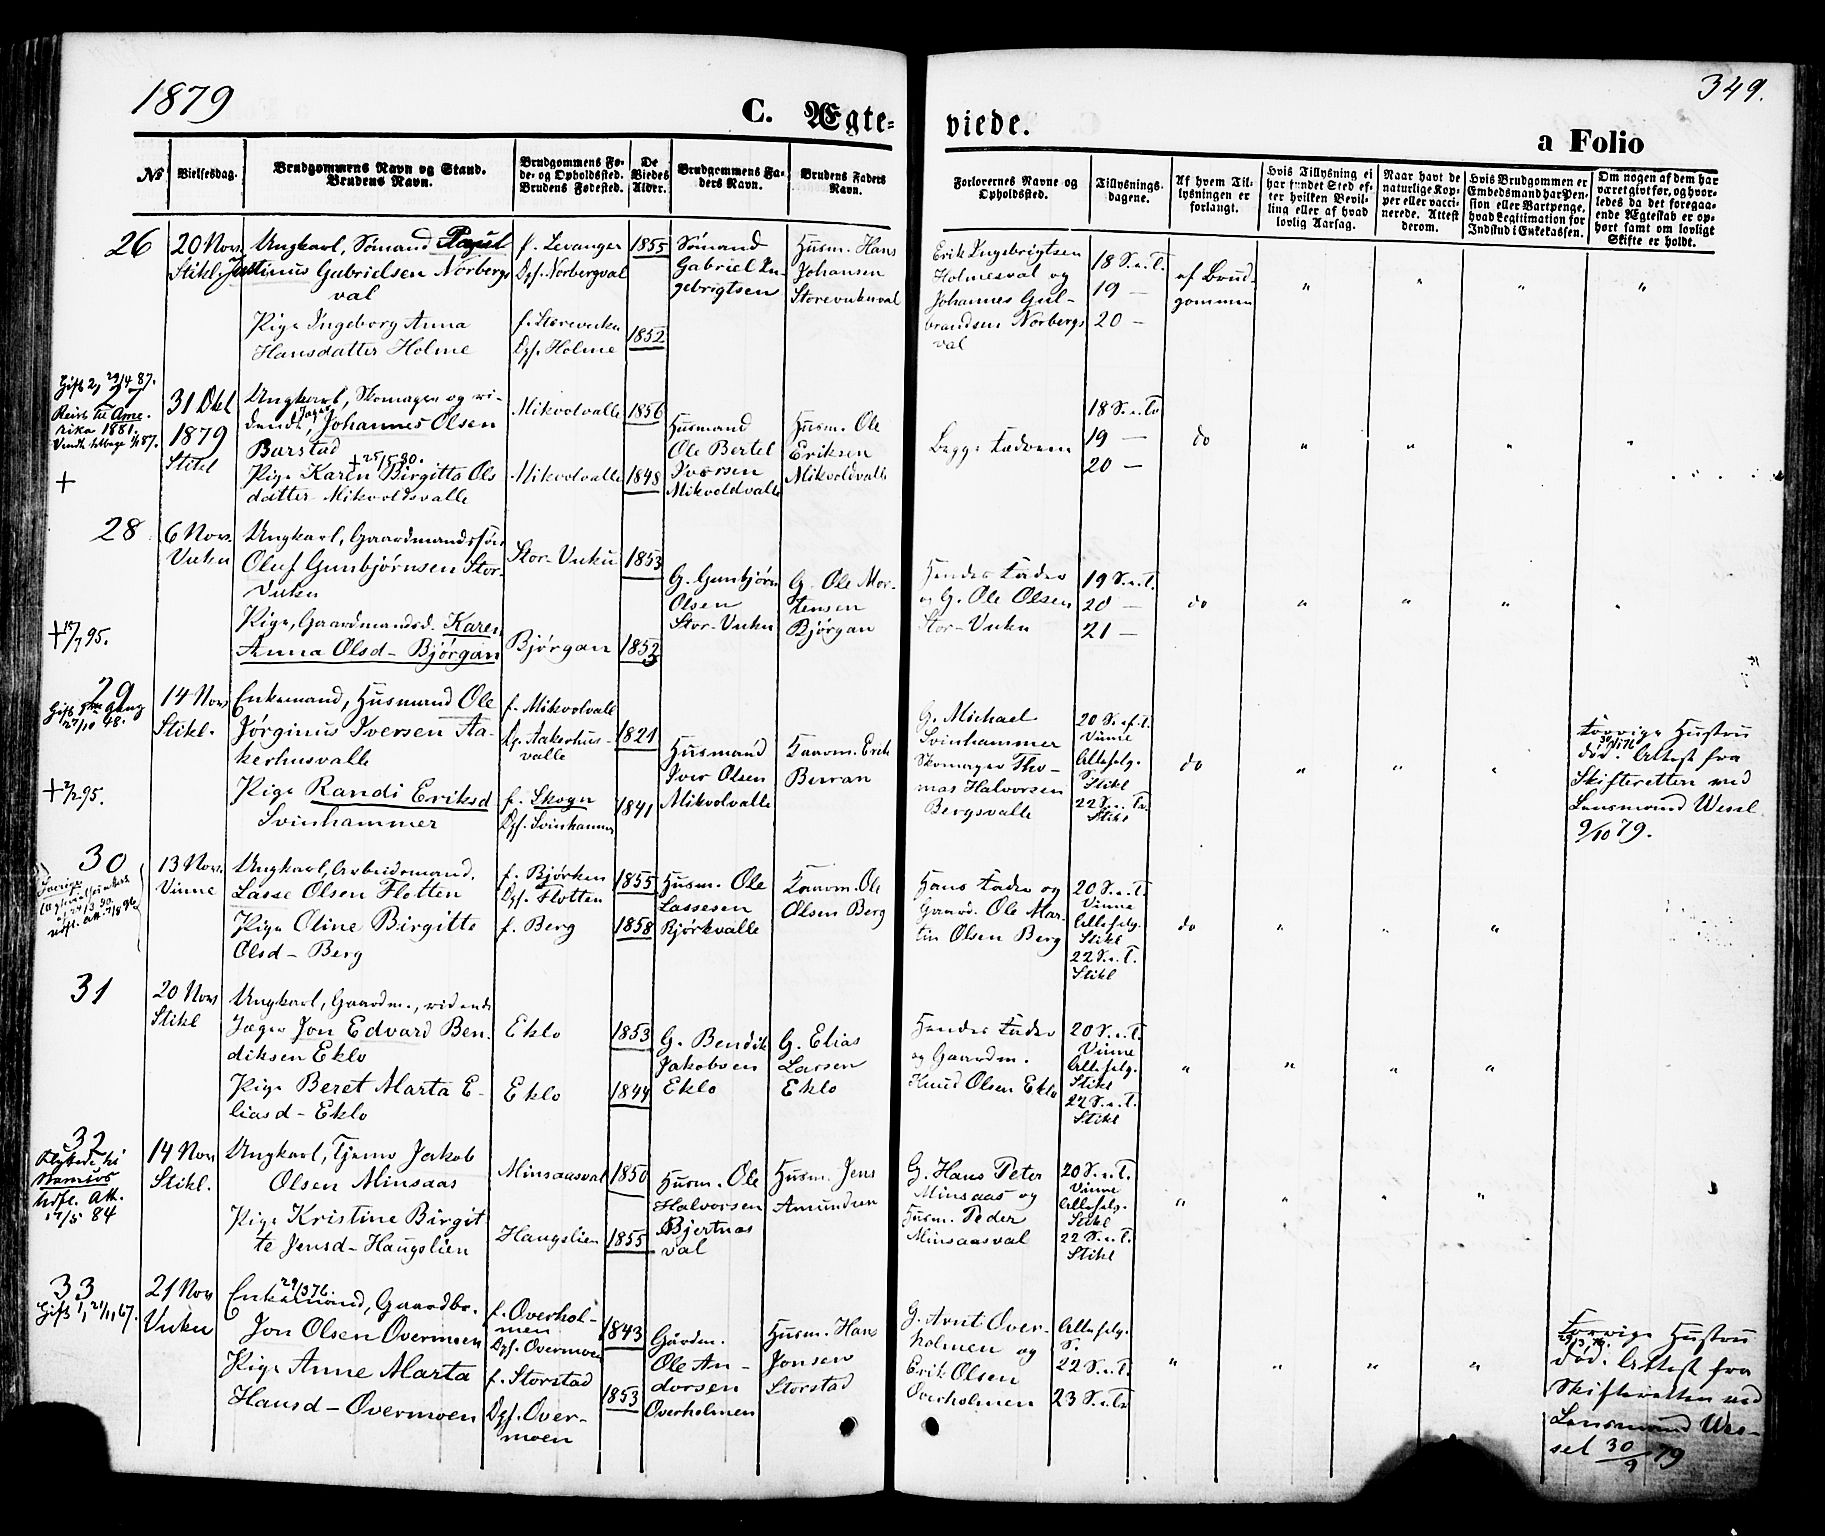 1879
349.
C. Ægte-
viede.
a Folio
No
Vielsesdag.
Brudgommens Navn og Stand.
Brudens Navn.
Brudgommens Fø-
de- og Opholdssted.
Brudens Fødested.
De
Viedes
Alder.
Brudgommens Fa-
ders Navn.
Brudens Faders
Navn.
Forlorernes Navne og
Opholdssted.
Tillysnings-
dagene.
Af hvem Til-
lysningen er
forlangt.
Hvis Tillysning ei
har fundet Sted ef-
ter hvilken Bevil-
ling eller af hvad
lovlig Aarsag.
Naar havt de
naturlige Kop-
per eller vacci-
nerede. Attest
derom.
Hvis Brudgommen er
Embedsmand har Pen-
sion eller Vartpenge,
hvad Legitimation for
Indskud i Enkekassen.
Om nogen af dem har
været givt før, og hvor-
ledes da det foregaa-
ende Ægteskab er op-
hørt samt om lovligt
Skifte er holdt.
26
20 Nov.
Stikl.
Ungkarl, Sømand Paul
Justinus Gabrielsen Norbergs
val
Pige Ingeborg Anna
Hansdatter Holme
f. Levanger
Opf. Norbergval
f. Storevuku
Opf. Holme
1855
1852
Sømand
Gabriel In-
gebrigtsen
Husm. Hans
Johansen
Storevukuval
Erik Ingebrigtsen
Holmesval og
Johannes Gul-
brandsen Norbergs
val
18 S. e. T.
19 —
20 —
af Brud-
gommen
" " " "
Gift 2, 29/4 87.
27
Reist til Ame-
rika 1881.
Vendt tilbage 1/187.
+
31 Okt
1879
Stikl
Ungkarl, Skomager og ri-
dende Jæger, Johannes Olsen
Barstad
+ 25/5 90.
Pige Karen Birgitta Ols
datter Mikvoldsvalle
Mikvolvalle
Mikvolvalle
1856
1848
Husmand
Ole Bertel
Iversen
Mikvoldvalle
Husm. Ole
Eriksen
Mikvoldvalle
Begge Fædrene
18 S. e. Tr
19 —
20 —
do
" " " "
28
+ 15/7 95.
6 Nov.
Vuku
Ungkarl, Gaardmandssøn
Oluf Gunbjørnsen Stor-
Vuku
Pige, Gaardmandsd. Karen
Anna Olsd- Bjørgan
Stor-Vuku
Bjørgan
1853
1853
G. Gunbjørn
Olsen
Stor-Vuku
G. Ole Mor-
tensen
Bjørgan
Hendes Fader
og G. Ole Olsen
Stor-Vuku
19 S. e. T.
20 —
21 —
do
" " " "
29
Gift 1ste Gang
27/10 48.
+ 2/2 95.
14 Nov
Stikl.
Enkemand, Husmand Ole
Jørginus Iversen Aa-
kerhusvalle
Pige Randi Eriksd
Svinhammer
f. Mikvolvall
Opf. Aakerhus-
valle
f. Skogn
Opf. Svinhammer
1821
1841
Husmand
Iver Olsen
Mikvolvalle
Faarm. Erik
Berran
G. Michael
Svinhammer
Skomager Tho-
mas Halvorsen
Bergsvalle
20 S. e. f. T.
Vinne
Allehelg.
S.
Stikl
22 S. e. Tr.
Stikl
do
" " "
Forrige Hustru
død. Attest fra
Skifteretten ved
Lensmand Wessel
9/10 79.
30
13 Nov.
Vinne
Ungkarl, Arbeidsmand,
Lasse Olsen Flotten
Pige Oline Birgitte
Olsd- Berg
f. Bjørken
Opf. Flotten
f. Berg
1855
1858
Husm. Ole
Lassesen
Bjørkvalle
Faarm. Ole
Olsen Berg
Hans Fader og
Gaards. Ole Mar-
tin Olsen Berg
20 S. e. T
Vinne
Allehelg.
Stikl
22 S. e. T.
Stikl
do
" " "
31
20 Nov
Stikl
Ungkarl, Gaardm., ridende
Jæger Jon Edvard Ben-
diksen Eklo
Pige Beret Marta E-
liasd- Eklo
Eklo
Eklo
1853
1844
G. Bendik
Jakobsen
Eklo
G. Elias
Larsen
Eklo
Hendes Fader
og Gaardm.
Knud Olsen Eklo
20 S. e. T.
Vinne
Allehelg.
Stikl
22 S. e. T.
Stikl
" " " "
32
Namsos
Udfl. Att.
17/5 84
14 Nov
Stikl.
Ungkarl, Tjener Jakob
Olsen Minsaas
Pige Kristine Birgit
te Jensd- Haugslien
Minsaasval
Haugslien
1850
1855
Husm. Ole
Halvorsen
Bjertnas
val
Husm. Jens
Amundsen
G. Hans Peter
Minsaas og
Husm. Peder
Minsaasval
20 S. e. T.
Vinne
Allehelg.
Stikl
22 S. e. T.
Stikl
" " " "
33
Gift 1, 21/11 67.
21 Nov
Vuku
29/3 76
Enkemand, Gaardbr.
Jon Olsen Overmoen
Pige Anne Marta
Hansd- Overmoen
f. Overhol-
men
Opf. Overmoen
f. Storstad
Opf. Over-
moen
1843
1853
Gaardm.
Ole An-
dorsen
Overholmen
Husm. Hans
Jonsen
Storstad
G. Arnt Over-
holmen og
Erik Olsen
Overholmen
Allehelg.
S.
22 S. e. T.
23 S. e. Tr
" " " "
Forrige Hustru
29/3 76.
død. Attest fra
Skifteretten ved
Lensmand Wes-
sel 30/9 79